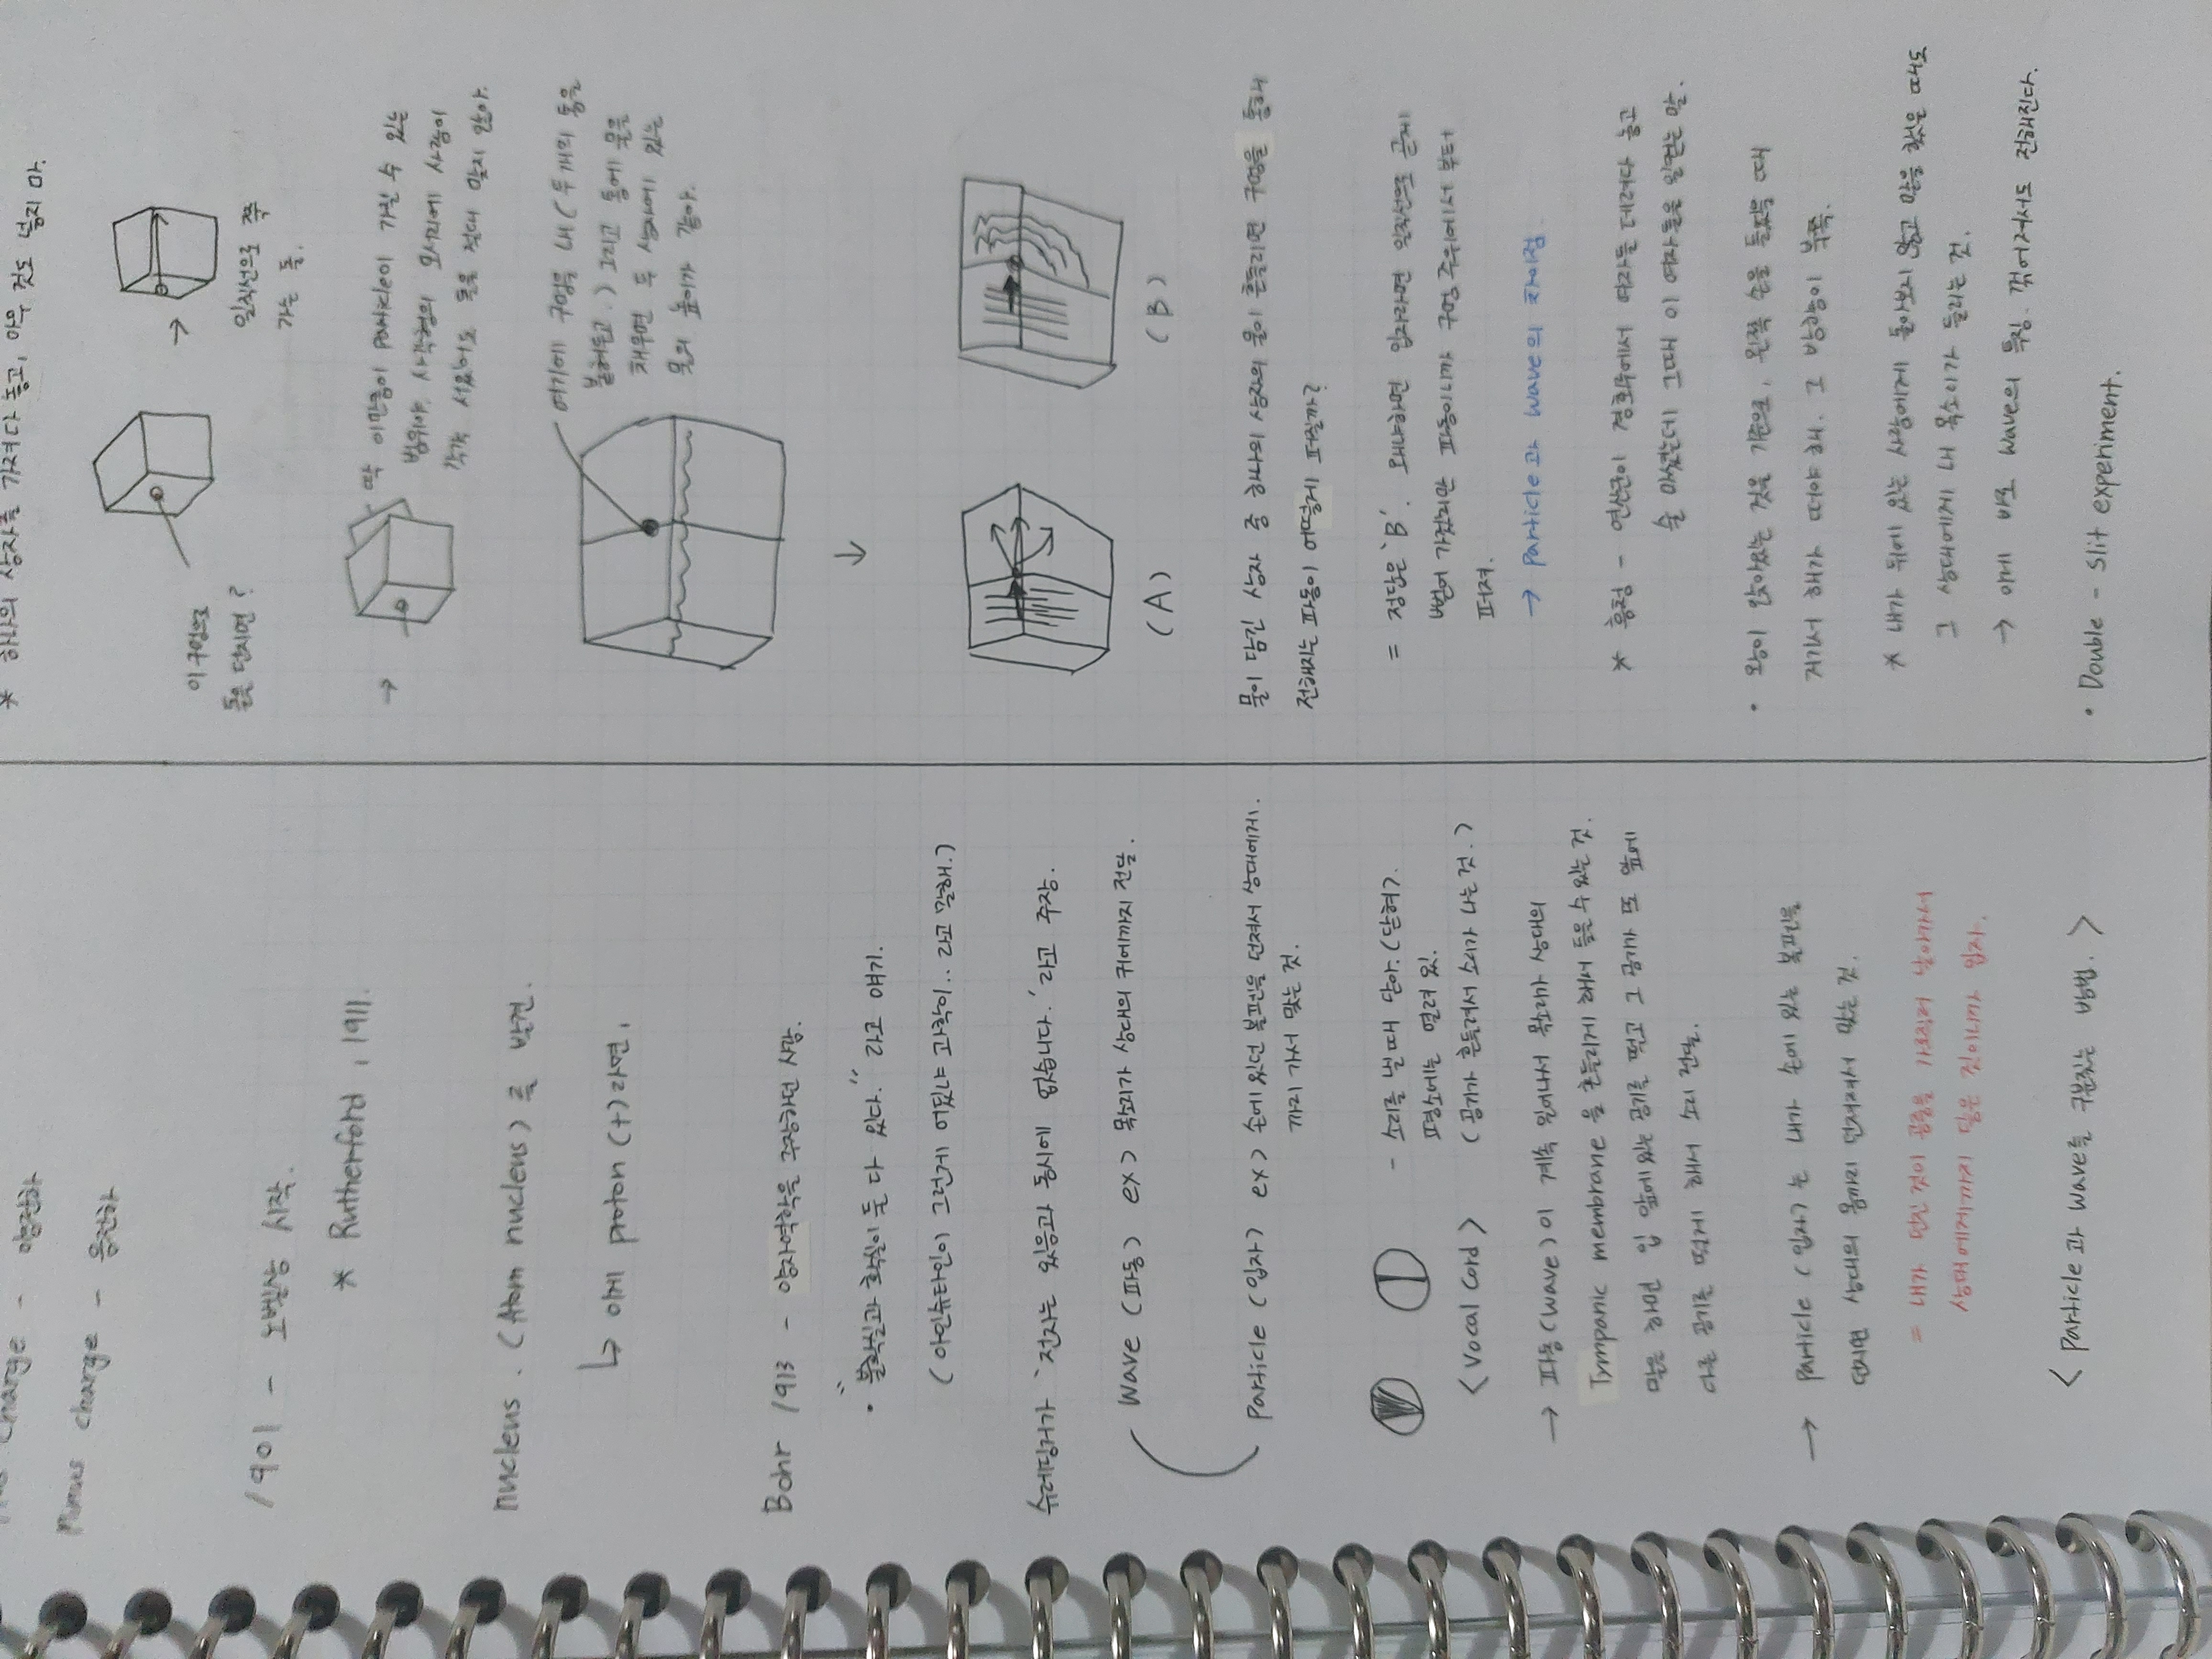 Minus charge - 음전하
1901 - 노벨상 시작.
* Rutherford, 1911.
nucleus. (Atom nucleus) 를 발견.
↳ 이게 proton (+)라면,
Bohr 1913 - 양자역학을 주장하던 사람.
• "불확실과 확실이 둘 다 있다." 라고 얘기.
(아인슈타인이 그런게 어딨냐 과학이.. 라고 말해.)
슈레딩거가 '전자는 있음과 동시에 없습니다.' 라고 주장.
Wave (파동) ex) 목소리가 상대의 귀에까지 전달.
Particle (입자) ex) 손에 있던 볼펜을 던져서 상대에게
까지 가서 맞는 것.
- 소리를 낼 때 닫아. (닫혀?)
평소에는 열려 있.
<Vocal Cord> (공기가 흔들려서 소리가 나는 것.)
→ 파동(wave)이 계속 일어나서 목소리가 상대의
Tympanic membrane 을 흔들리게 해서 들을 수 있는 것.
말을 하면 입 앞에 있는 공기를 떨고 그 공기가 또 옆에
있는 공기를 떨게 해서 소리 전달.
→ Particle (입자)는 내가 손에 있는 볼펜을
던지면 상대의 몸까지 던져져서 맞는 것.
= 내가 던진 것이 공중을 가로질러 날아가서
상대에게까지 닿은 것이니까 입자.
<Particle과 Wave를 구분짓는 방법.>
* 하나의 상자를 가져다 놓고, 아무 것도 넣지 마.
이 구멍으로
돌을 던지면?
→
일직선으로 쭉
가는 돌.
→
딱 이만큼이 Particle이 가질 수 있는
범위야. 사각형의 모서리에 사람이
각각 서있어도 돌을 절대 맞지 않아.
여기에 구멍을 내 (두 개의 통을
붙여놓고.) 그리고 통에 물을
채우면 두 상자에 있는
물의 높이가 같아.
↓
(A) (B)
물이 담긴 상자 중 하나의 상자의 물이 흔들리면 구멍을 통해
전해지는 파동이 어떻게 퍼질까?
= 정답은 'B'. 왜냐하면 입자라면 일직선으로 곧게
뻗어 가겠지만 파동이니까 구멍 주위에서부터
퍼져.
→ Particle과 Wave의 차이점.
* 흥청 - 연산군이 경회루에서 여자를 데려다 놓고
술 마셨는데 그때 이 여자들을 일컫는 말.
• 왕이 앉아있는 것을 기준으로, 왼쪽 손을 들었을 때
거기서 해가 떠야 해. 그 방향이 동쪽.
* 내가 뒤에 있는 사람에게 돌아보지 않고 말을 했을 때도
그 상대에게 내 목소리가 들리는 것.
→ 이게 바로 Wave의 특징. 꺾어져서도 전해진다.
• Double - Slit experiment.